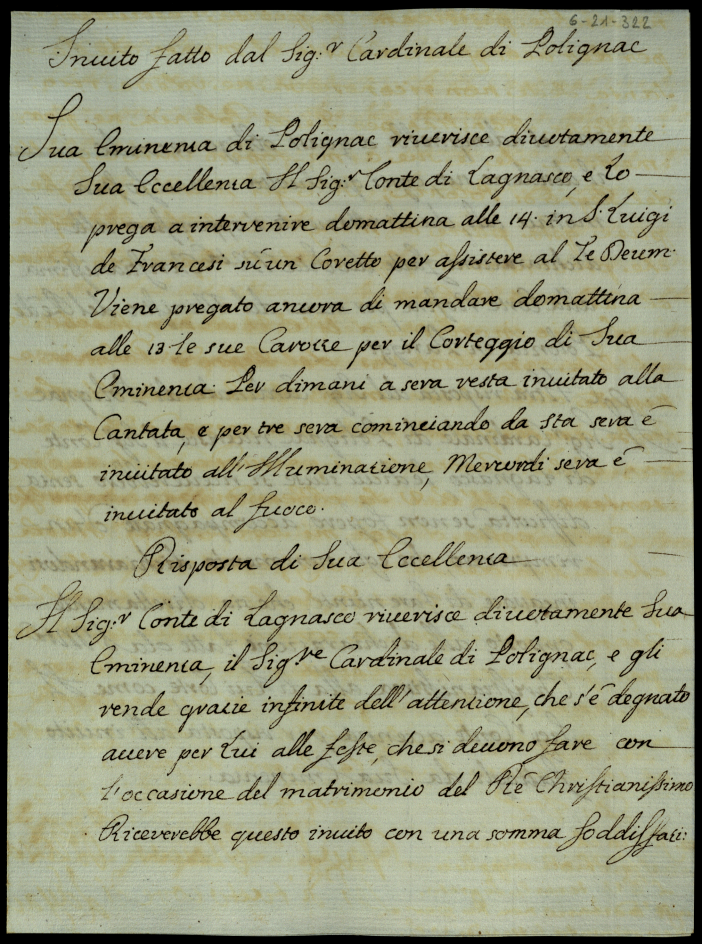 6-21-322
Invito fatto dal Sig:r Cardinale di Polignac
Sua Eminenza di Polignac riverisce divotamente
Sua Eccellenza Il Sig:r Conte di Lagnasco, e Lo
prega a intervenire domattina alle 14. in S. Luigi
de Francesi sù un Coretto per assistere al Te Deum.
Viene pregato ancora di mandare domattina
alle 13. le sue Carozze per il Corteggio di Sua
Eminenza. Per dimani a sera resta invitato alla
Cantata, e per tre sera cominciando da sta sera è
invitato all'Illuminazione, Mercordi sera è
invitato al fuoco.
Risposta di Sua Eccellenza
Il Sig:r Conte di Lagnasco riverisce divotamente Sua
Eminenza, il Sig:re Cardinale di Polignac, e gli
rende grazie infinite dell'attenzione, che s'è degnato
avere per Lui alle feste, che si devono fare con
l'occasione del matrimonio del Rè Christianissimo
Riceverebbe questo invito con una somma soddisfazi: